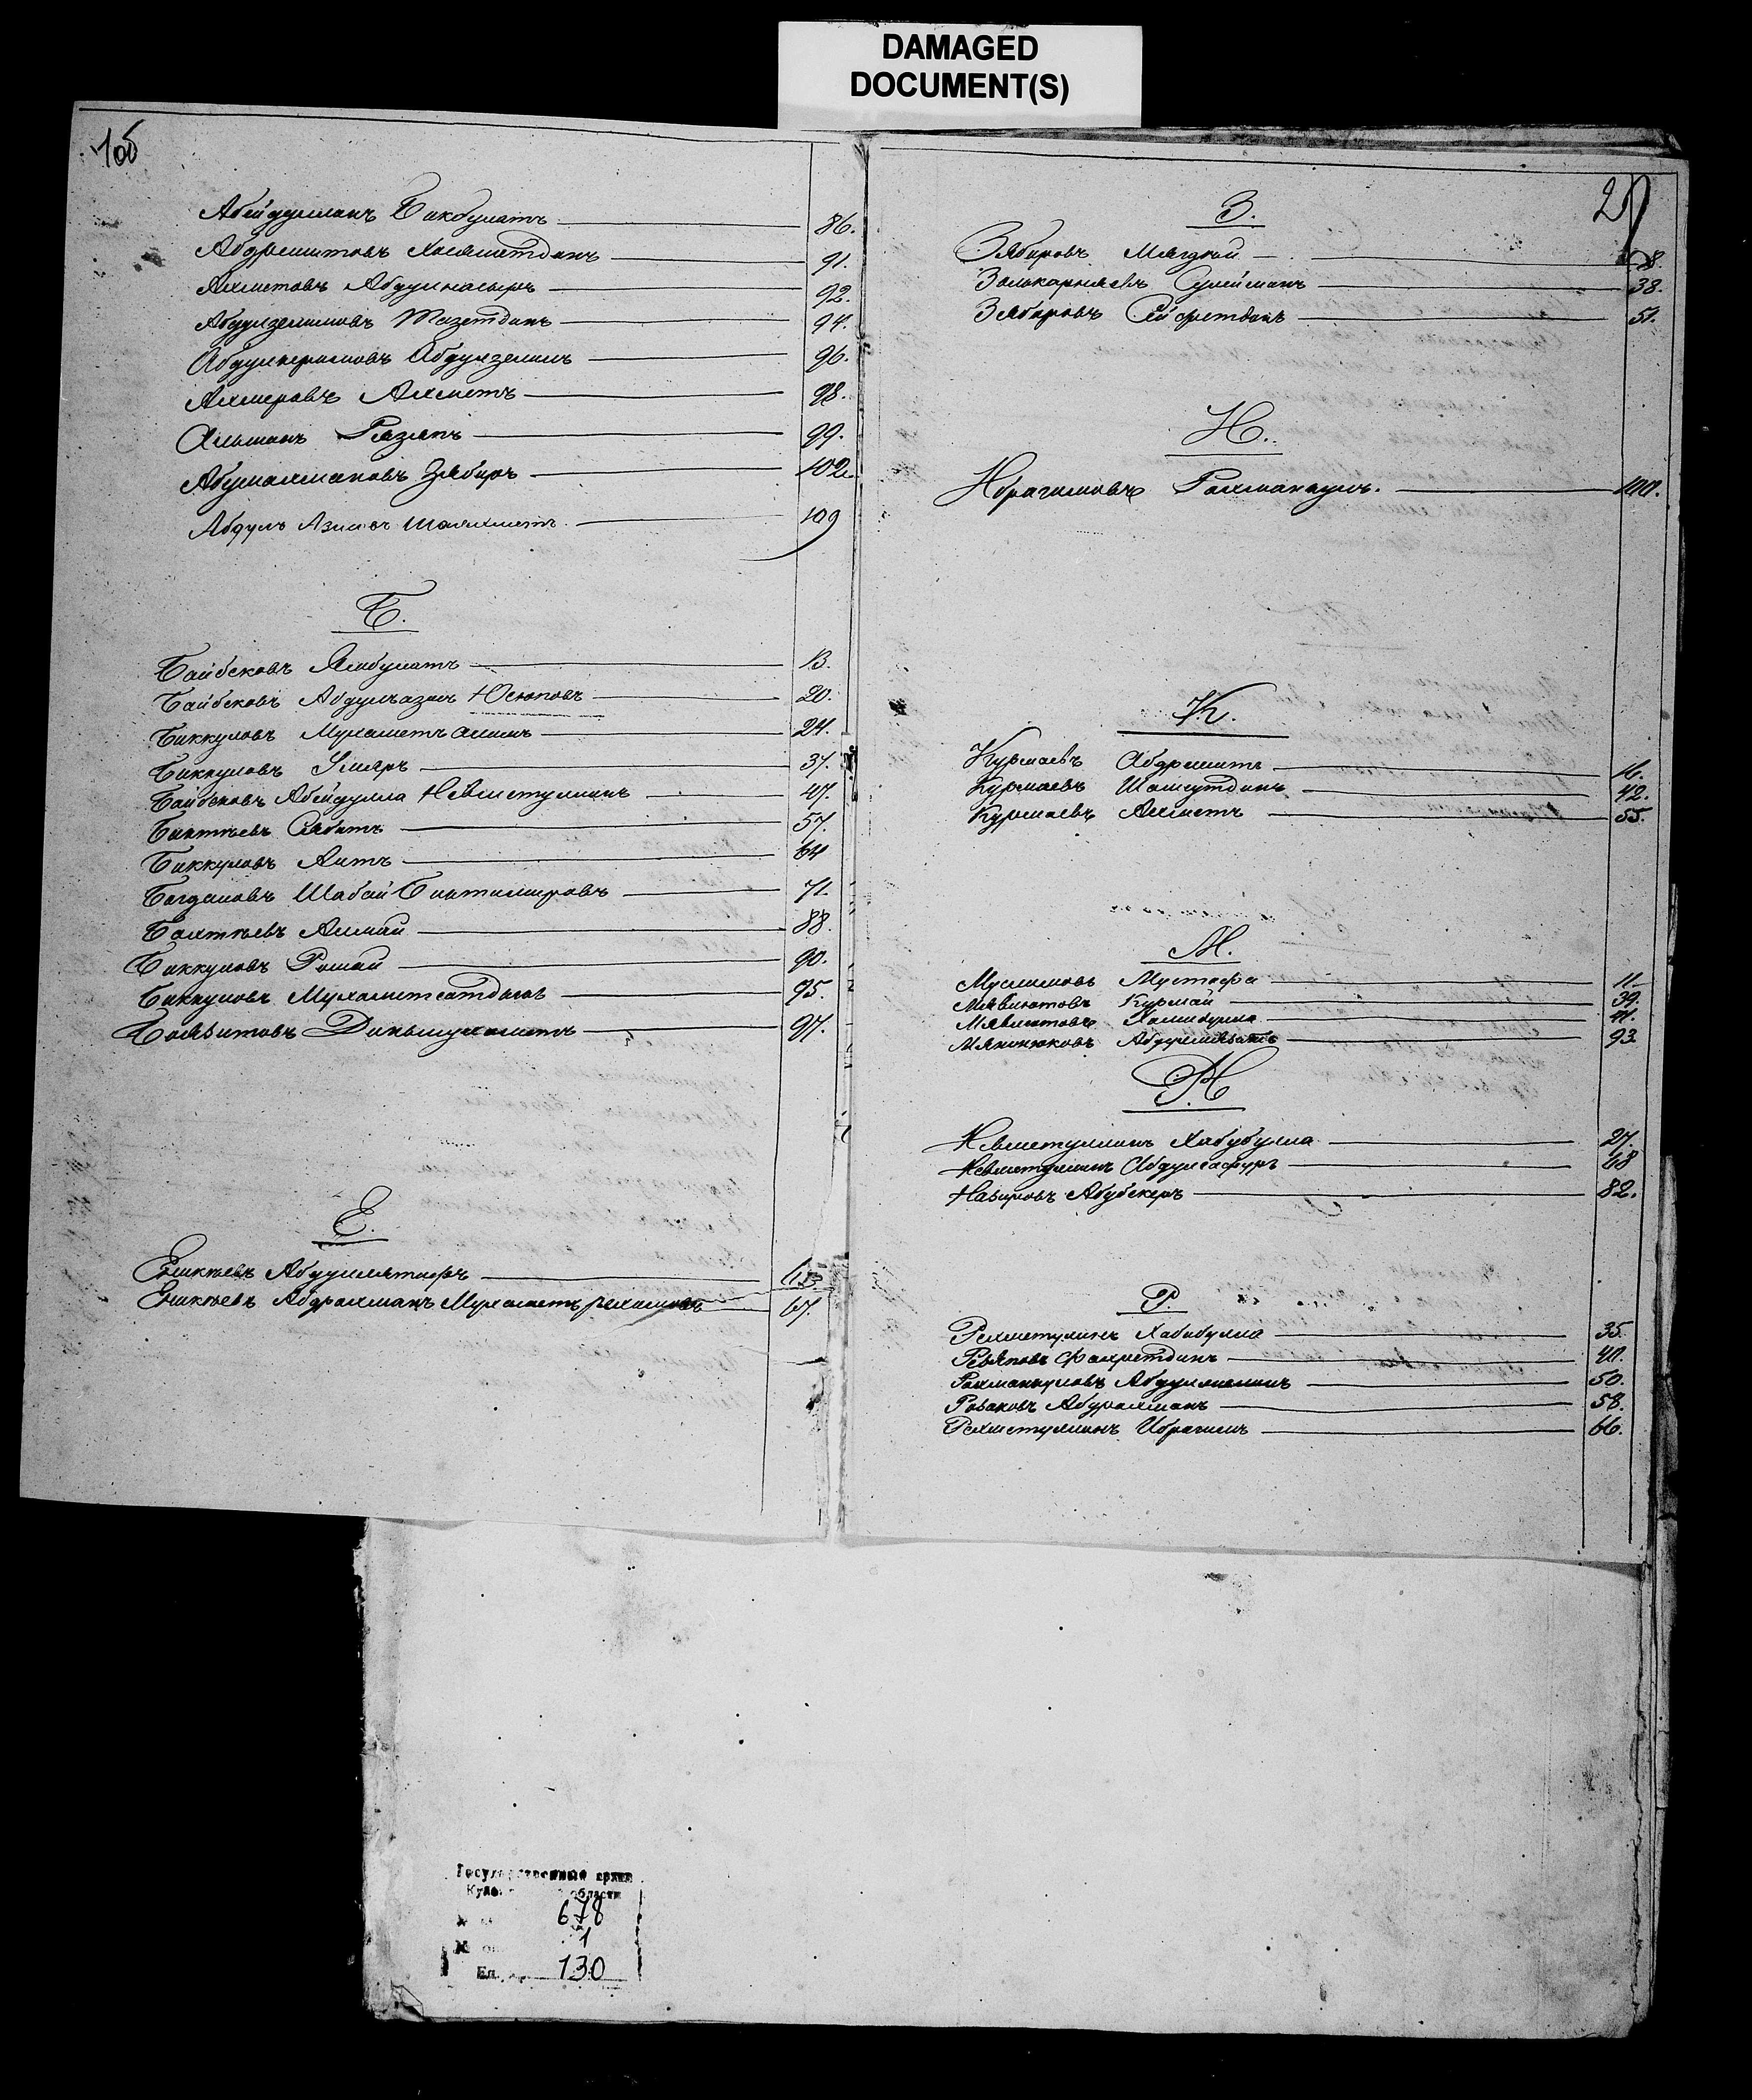 DAMAGED
DOCUMENT(S)
1об
Абейдуллинъ Бикбулатъ 86.
Абдрешитовъ Хисаметдинъ 91.
Ахметовъ Абдулнасыръ 92.
Абдулзелиловъ Мазетдинъ 94.
Абдулкеримовъ Абдулзелилъ 96.
Ахмеровъ Ахметъ 98.
Альшинъ Рязапъ 99.
Абумахмановъ Зябиръ 102.
Абдулъ Азимовъ Шаиахметъ 109
Б.
Байбековъ Ямбулатъ 13.
Байбековъ Абдулъазисъ Юсюповъ 20.
Биккуловъ Мухаметъ Алимъ 24.
Биккуловъ Умяръ 37.
Байбековъ Абейдулла Невметуллинъ 47.
Биктѣевъ Сябитъ 57.
Биккуловъ Аитъ 64
Богдановъ Шабай Биктимировъ 71.
Бахтѣевъ Алимай 88.
Биккуловъ Ромай 90.
Биккуловъ Мухаметсатдыкъ 95.
Баязитовъ Диньмухаметъ 97.
Е.
Еникѣевъ Абдуллятифъ 63
Еникѣевъ Абдрахманъ Мухаметъ Рехимовъ 67.
2
З.
Зябировъ Мягдѣй 8.
Золькарняевъ Сулейманъ 38.
Зябировъ Сейфетдинъ 51.
И.
Ибрагимовъ Рахманкулъ. 100.
К.
Курмаевъ Абдрешитъ 16.
Курмаевъ Шамсутдинъ 42.
Курмаевъ Ахметъ 55.
М.
Муслимовъ Мустафа 11.
Мявлютовъ Курмай 39.
Мявлютовъ Халибулла 41.
Мянинюковъ Абдулмязитъ 93.
Н
Невметуллинъ Хабубулла 27.
Невметуллинъ Абдулгафуръ 68
Назировъ Абубекеръ 82.
Р.
Рехметулинъ Хабибулла 35.
Резяповъ Фахретдинъ 40.
Рахманкуловъ Абдулхалимъ 50.
Розаковъ Абдрахманъ 58.
Рехметуллинъ Ибрагимъ 66.
678
1
130